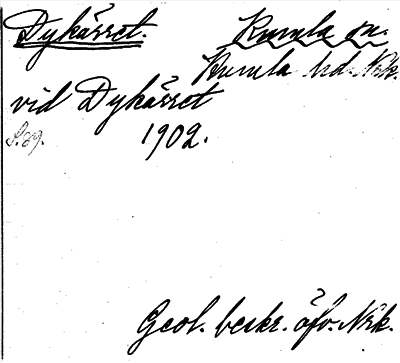 Dykärret. Kumla sn.
Kumla hd. Nrk.
vid Dykärret
S. 89. 1902.
Geol. beskr. öfv. Nrk.